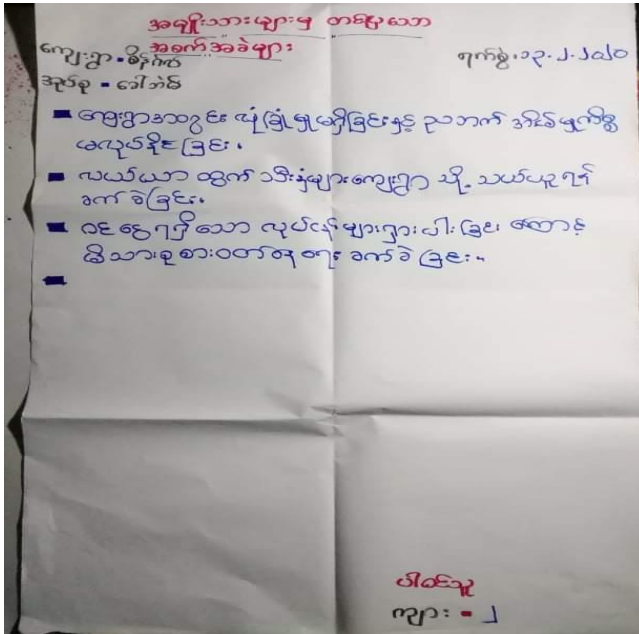 အမျိုးသားများမှ တင်ပြသော
အခက်အခဲများ
ကျေးရွာ - စိန်
ရက်စွဲ၊ ၁၃.၂.၂၀၂၀
အုပ်စု - ဒေါ
ကျေးရွာအတွင်း လုံခြုံမှုမရှိခြင်းနှင့် ညဘက် အိမ်မှုကိစ္စ
မလုပ်နိုင်ခြင်း။
လယ်ယာ ထွက် သီးနှံများကျေးရွာ သို့ သယ်ယူရန်
ခက်ခဲခြင်း။
ဝင်ငွေရရှိသော လုပ်ငန်းများရှားပါးခြင်း ကြောင့်
မိသားစုစားဝတ်နေရေး ခက်ခဲခြင်း။
ပါဝင်သူ
ကျား - ၂